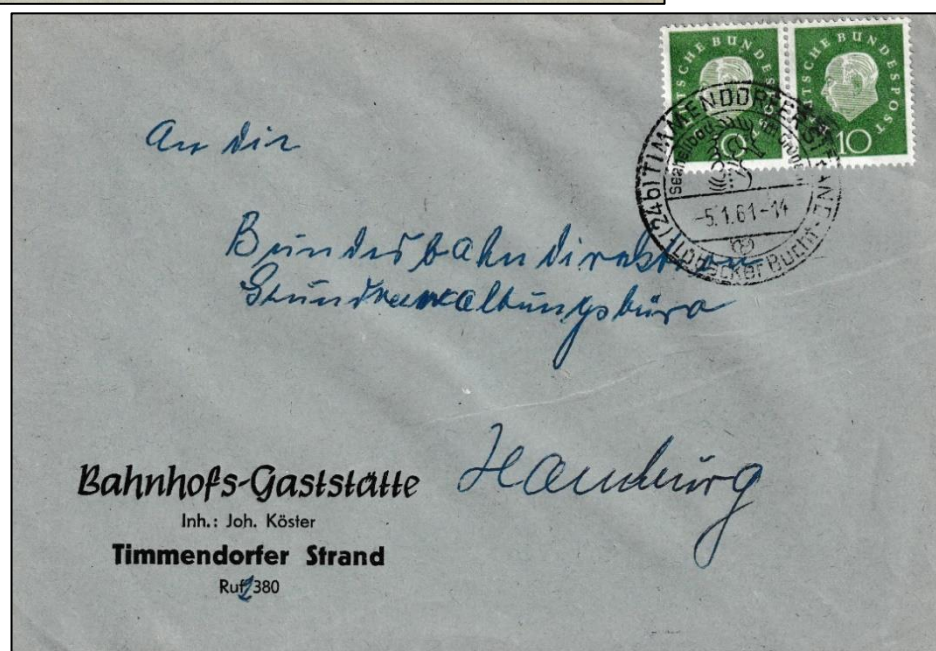 DEUTSCHE BUNDESPOST
DEUTSCHE BUNDESPOST
10
(24b) TIMMENDORFER STRAND
Seeheilbad
-5.1.61-14
Lübecker Bucht
An die
Bundesbahndirektion
Grundverwaltungsbüro
Hamburg
Bahnhofs-Gaststätte
Inh.: Joh. Köster
Timmendorfer Strand
Ruf 2380